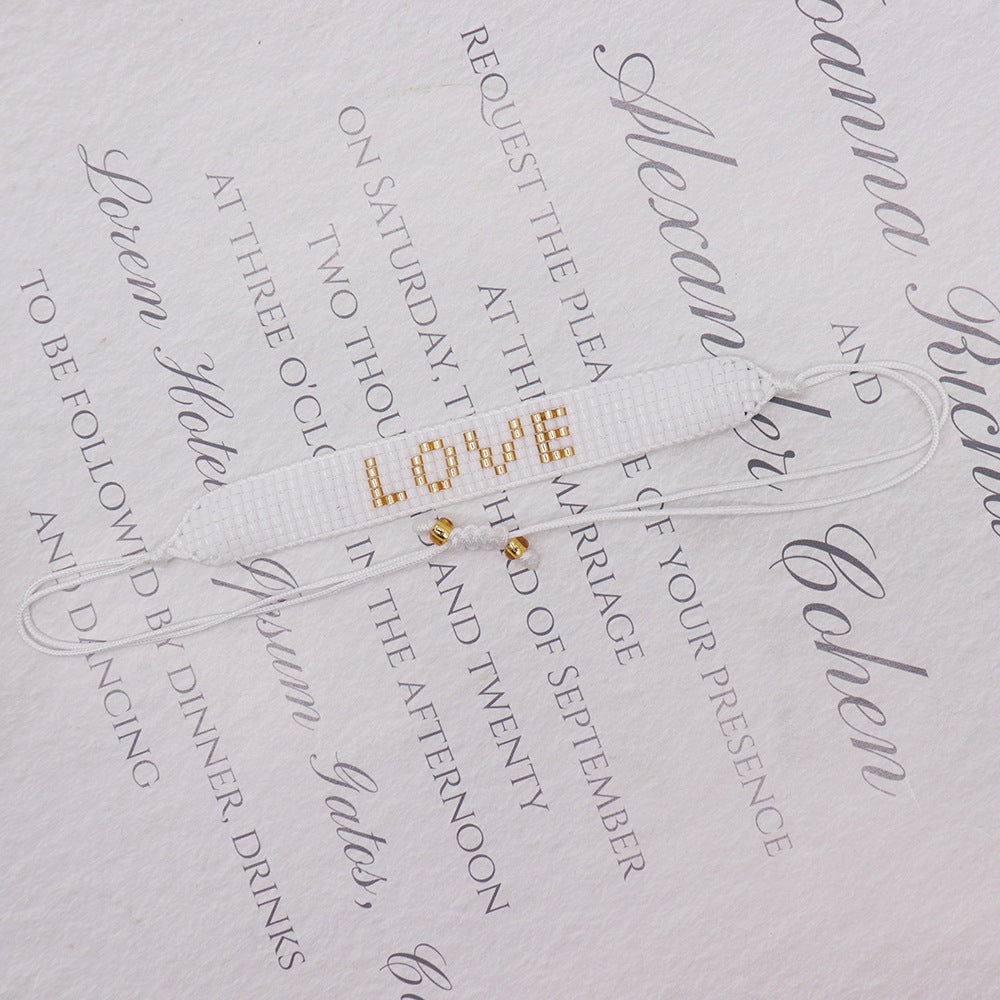 Joanna Richa
AND
Alexander Cohen
REQUEST THE PLEA CE OF YOUR PRESENCE
AT TH MARRIAGE
ON SATURDAY, T HIRD OF SEPTEMBER
TWO THOU AND TWENTY
AT THREE O'CLO IN THE AFTERNOON
Lorem Hotel Ipsum Gatos, C
TO BE FOLLOWED BY DINNER, DRINKS
AND DANCING
LOVE